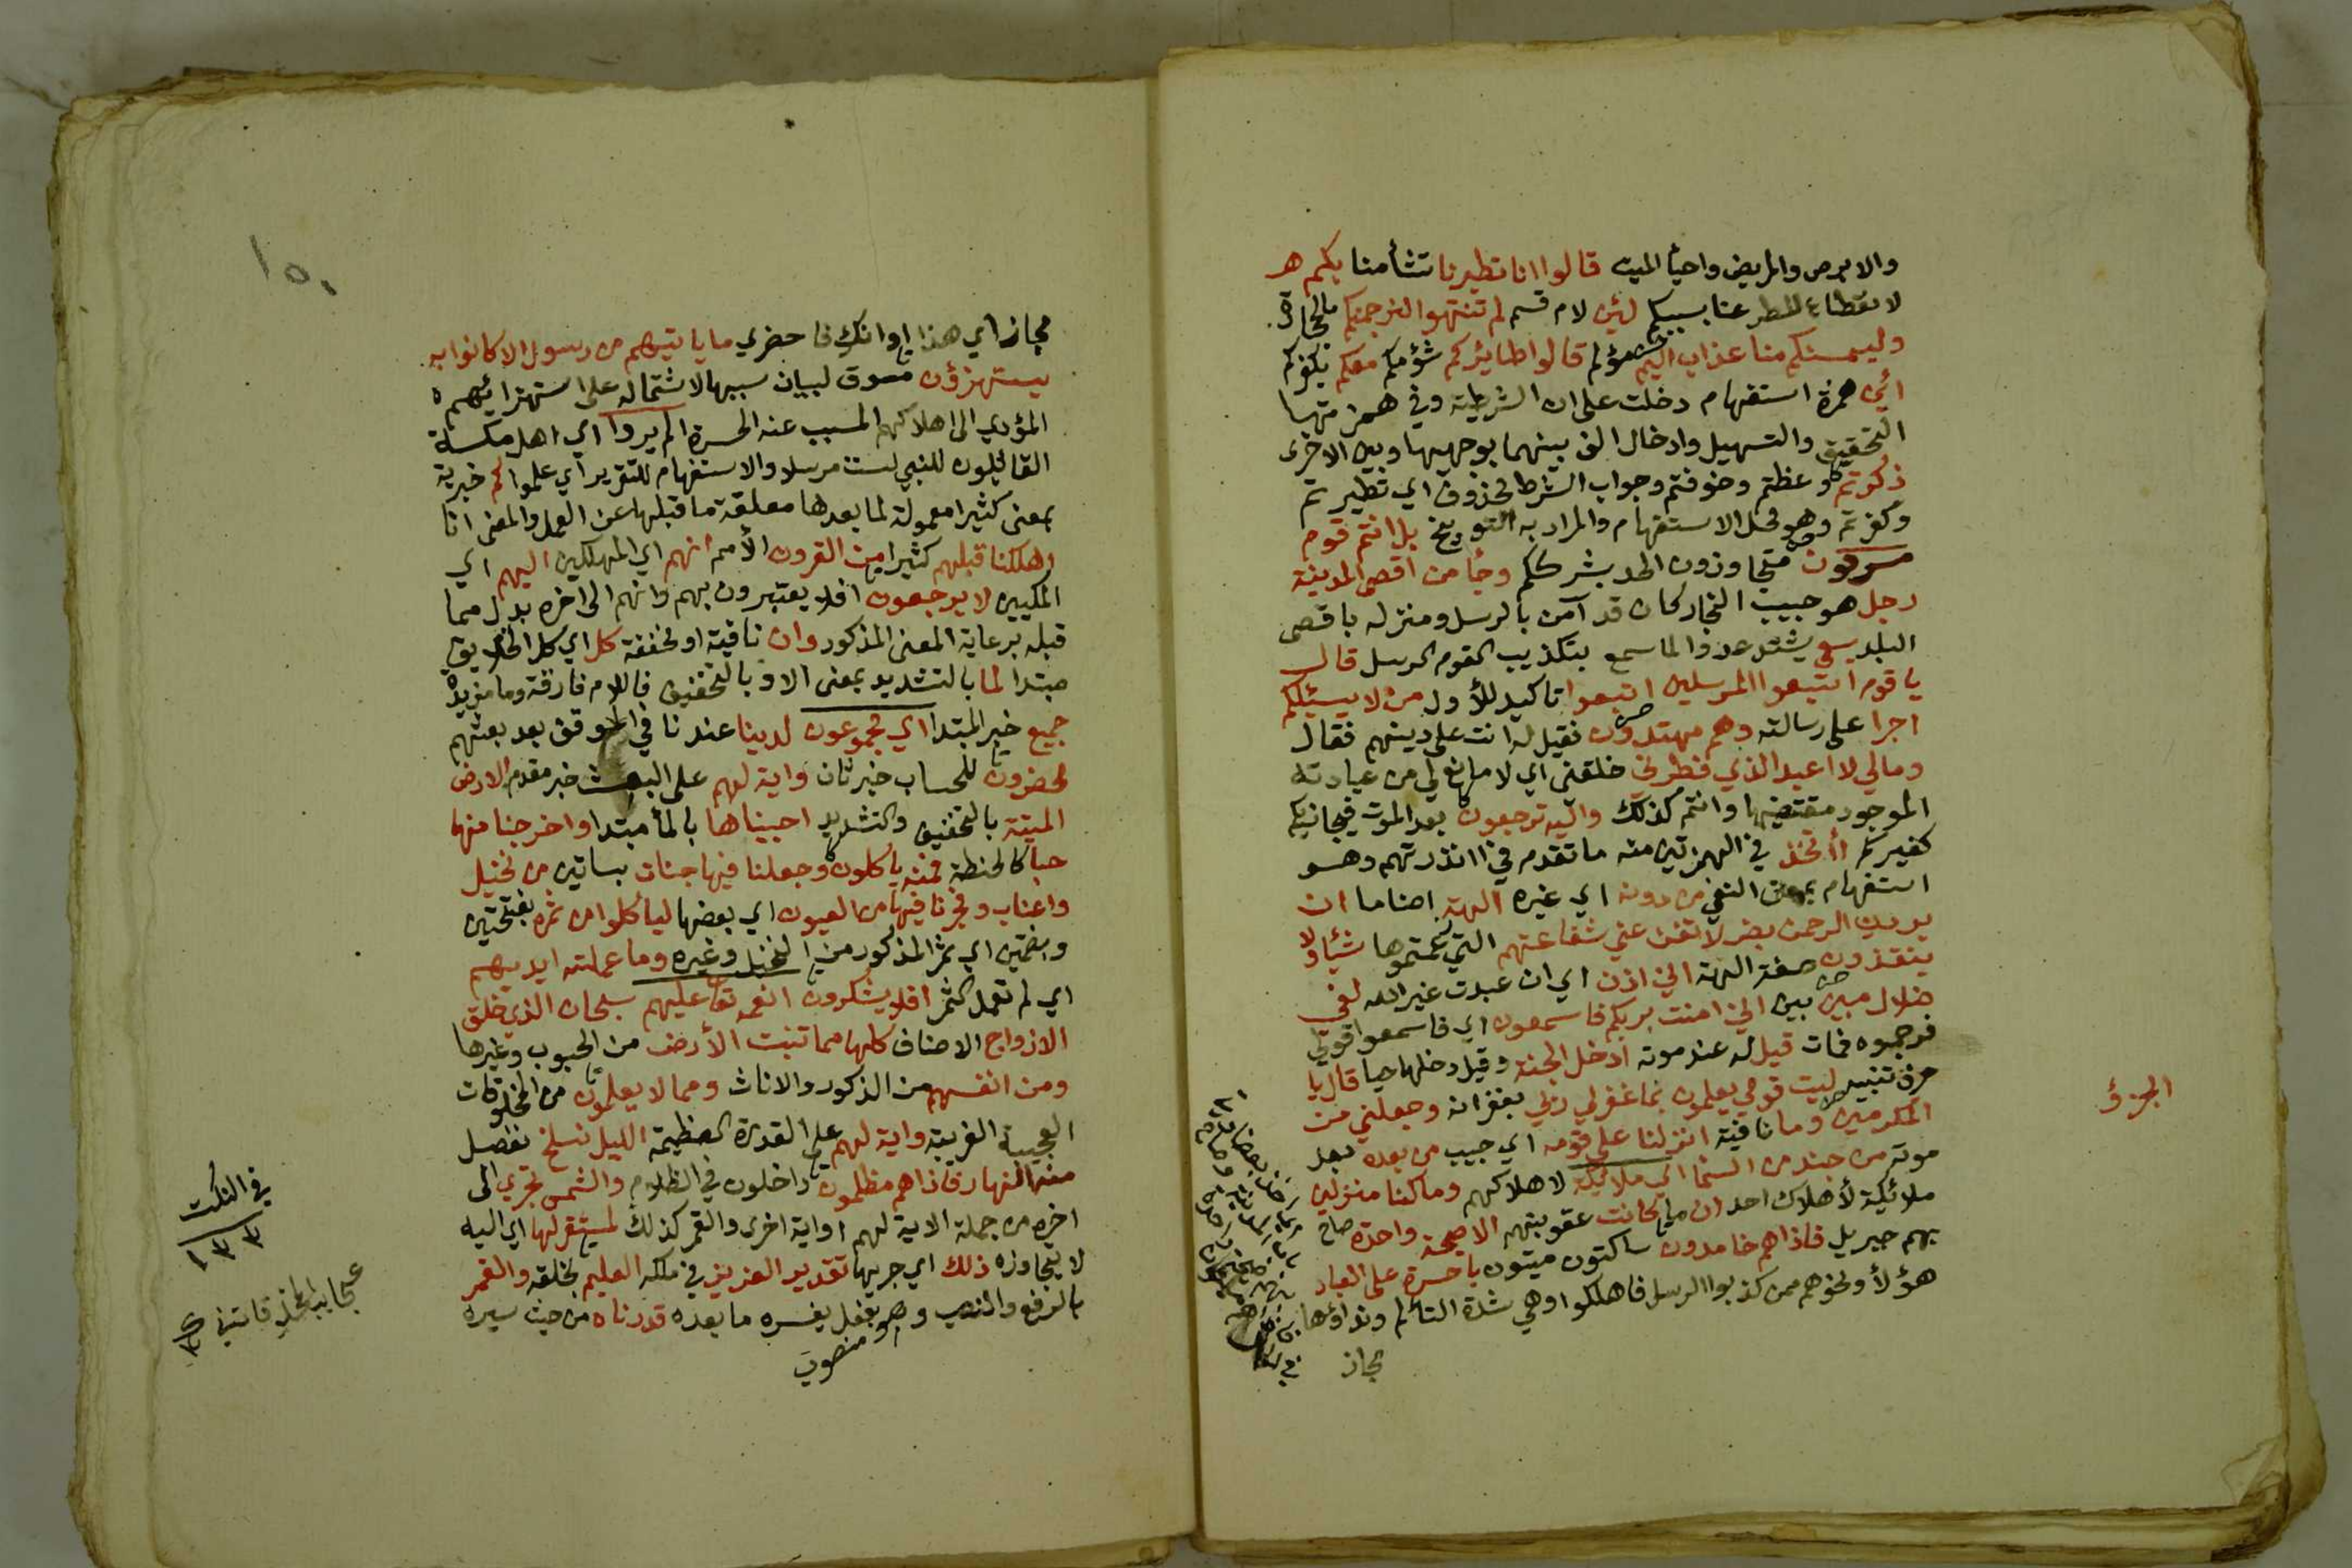 والابرص والمريض واحيأ الميت قالوا انا تطيرنا تشأمنا بكم هر
لانقطاع المطر عنا بسببكم لئن لام قسم لم تنتهوا لنرجمنكم بالحجارة
وليمسنكم منا عذاب اليم مؤلم قالوا طايركم شؤمكم معكم بكفركم
أئن همزة استفهام دخلت على ان الشرطية وفي همزتها
التحقيق والتسهيل وادخال الف بينهما بوجهيها وبين الاخرى
ذكرتم وعظتم وخوفتم وجواب الشرط محذوف اي تطيرتم
وكفرتم وهو محل الاستفهام والمراد به التوبيخ بل انتم قوم
مسرفون متجاوزون الحد بشرككم وجأ من اقصى المدينة
رجل هو حبيب النجار كان قد آمن بالرسل ومنزله باقصى
البلد يسعى يشتد عدوا لما سمع بتكذيب القوم الرسل قال
يا قوم اتبعوا المرسلين اتبعوا تاكيد للأول من لا يسئلكم
اجرا على رسالته وهم مهتدون فقيل له انت على دينهم فقال
ومالي لا اعبد الذي فطرني خلقني اي لا مانع لي من عبادته
الموجود مقتضيها وانتم كذلك واليه ترجعون بعد الموت فيجازيكم
كغيركم أأتخذ في الهمزتين منه ما تقدم في أانذرتهم وهو
استفهام بمعنى النفي من دونه اي غيره الهة اصناما ان
يردن الرحمن بضر لا تغن عني شفاعتهم التي زعمتموها شيأ ولا
ينقذون صفة الهة اني اذن اي ان عبدت غير الله لفي
ضلال مبين بين اني امنت بربكم فاسمعون اي فاسمعوا قولي
فرجموه فمات قيل له عند موته ادخل الجنة وقيل دخلها حيا قال يا
حرف تنبيه ليت قومي يعلمون بما غفر لي ربي بغفرانه وجعلني من
المكرمين وما نافية انزلنا على قومه اي حبيب من بعده بعد
موته من جند من السما اي ملائكة لاهلاكهم وما كنا منزلين
ملائكة لأهلاك احد ان ما كانت عقوبتهم الا صيحة واحدة صاح
بهم جبريل فاذا هم خامدون ساكتون ميتون يا حسرة على العباد
هؤلأ ونحوهم ممن كذبوا الرسل فاهلكوا وهي شدة التألم ونداؤها
مجاز
الجزؤ
١٥٠
مجاز اي هذا اوانك فاحضري ما ياتيهم من رسول الا كانوا به
يستهزؤن مسوق لبيان سببها لاشتماله على استهزائهم
المؤدي الى اهلاكهم المسبب عنه الحسرة الم يروا اي اهل مكة
القائلون للنبي لست مرسلا والاستفهام للتقرير اي علموا كم خبرية
بمعنى كثيرا معمولة لما بعدها معلقة ما قبلها عن العمل والمعنى انا
اهلكنا قبلهم كثيرا من القرون الأمم انهم اي المهلكين اليهم اي
المكيين لا يرجعون افلا يعتبرون بهم وانهم الى اخره بدل مما
قبله برعاية المعنى المذكور وان نافية او مخففة كل اي كل الخلايق
مبتدا لما بالتشديد بمعنى الا وبالتخفيف فاللام فارقة وما مزيدة
جميع خبر المبتدا اي مجموعون لدينا عندنا في الموقف بعد بعثهم
محضرون للحساب خبر ثان واية لهم على البعث خبر مقدم الارض
الميتة بالتخفيف والتشديد احييناها بالمأ مبتدا واخرجنا منها
حبا كالحنطة فمنه ياكلون وجعلنا فيها جنات بساتين من نخيل
واعناب وفجرنا فيها من العيون اي بعضها لياكلوا من ثمره بفتحتين
وبضمتين اي ثمر المذكور من النخيل وغيره وما عملته ايديهم
اي لم تعمل الثمر افلا يشكرون انعمه تعا عليهم سبحان الذي خلق
الازواج الاصناف كلها مما تنبت الأرض من الحبوب وغيرها
ومن انفسهم من الذكور والاناث ومما لا يعلمون من المخلوقات
العجيبة الغريبة واية لهم على القدرة العظيمة الليل نسلخ نفصل
منه النهار فاذا هم مظلمون داخلون في الظلام والشمس تجري الى
اخره من جملة الاية لهم او اية اخرى والقمر كذلك لمستقر لها اي اليه
لا يتجاوزه ذلك اي جريها تقدير العزيز في ملكه العليم بخلقه والقمر
بالرفع والنصب وهو بفعل يفسره ما بعده قدرناه من حيث سيره
منصوب
في النكت
١٣٣